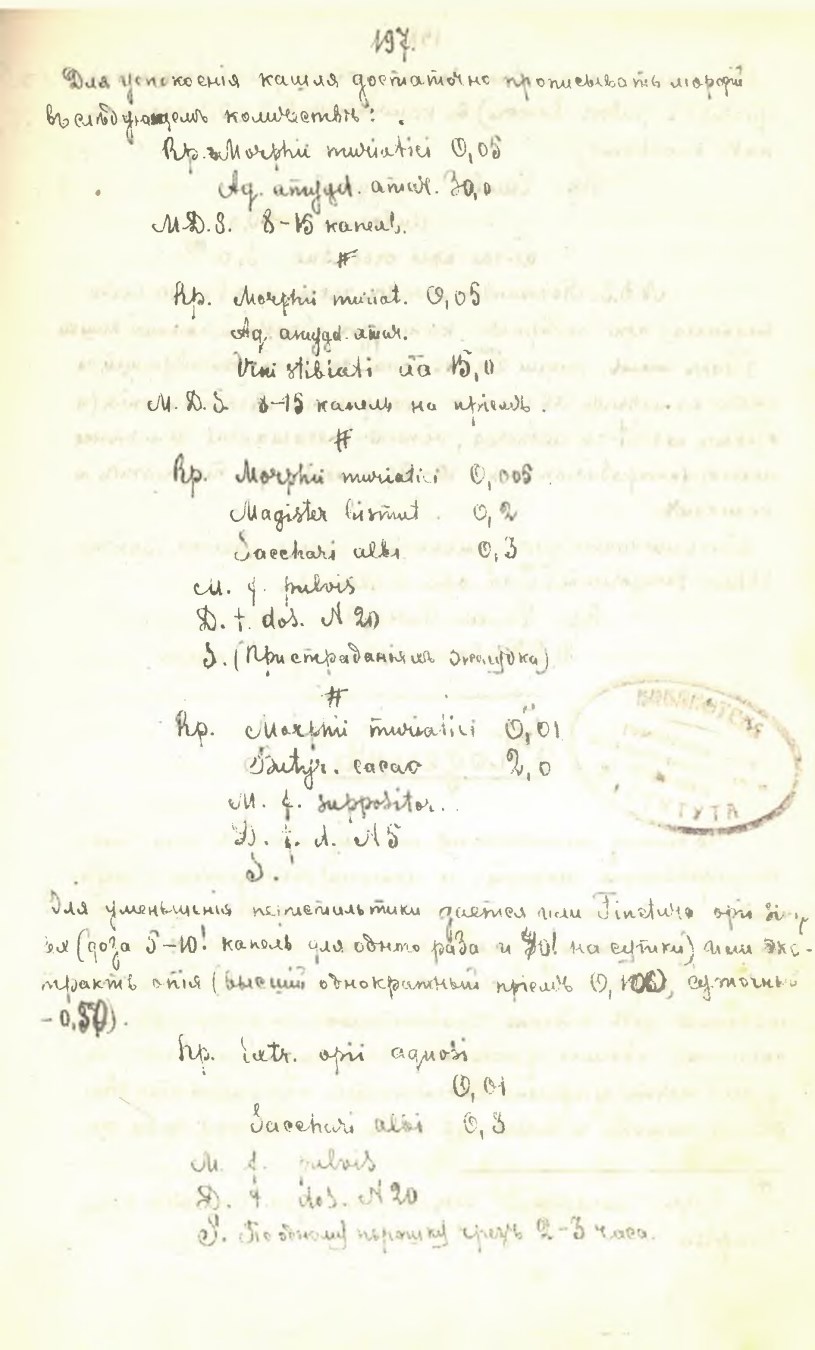 197.
Для успокоенія кашля достаточно прописывать морфій
въ слѣдующемъ количествѣ:
Rp. Morphii muriatici 0,05
Aq. amygd. amar. 30,0
M.D.S. 8-15 капель.
#
Rp. Morphii muriat. 0,05
Aq. amygd. amar.
Vini stibiati āā 15,0
M. D. S. 8-15 капель на пріемъ.
#
Rp. Morphii muriatici 0,005
Magister bismut. 0,2
Sacchari albi 0,3
M. f. pulvis
D. t. dos. N 20
S. (При страданіяхъ желудка)
#
Rp. Morphii muriatici 0,01
Butyr. cacao 2,0
M. f. suppositor.
D. t. d. N 5
S.
Для уменьшенія перистальтики дается или Tinctura opii
(доза 5-10! капель для одного раза и на сутки) или экс-
трактъ опія (высшій однократный пріемъ суточный
Rp. Extr. opii aquosi
0,01
Sacchari albi 0,3
M. f. pulvis
D. t. dos. N 20
S. По одному порошку чрезъ 2-3 часа.